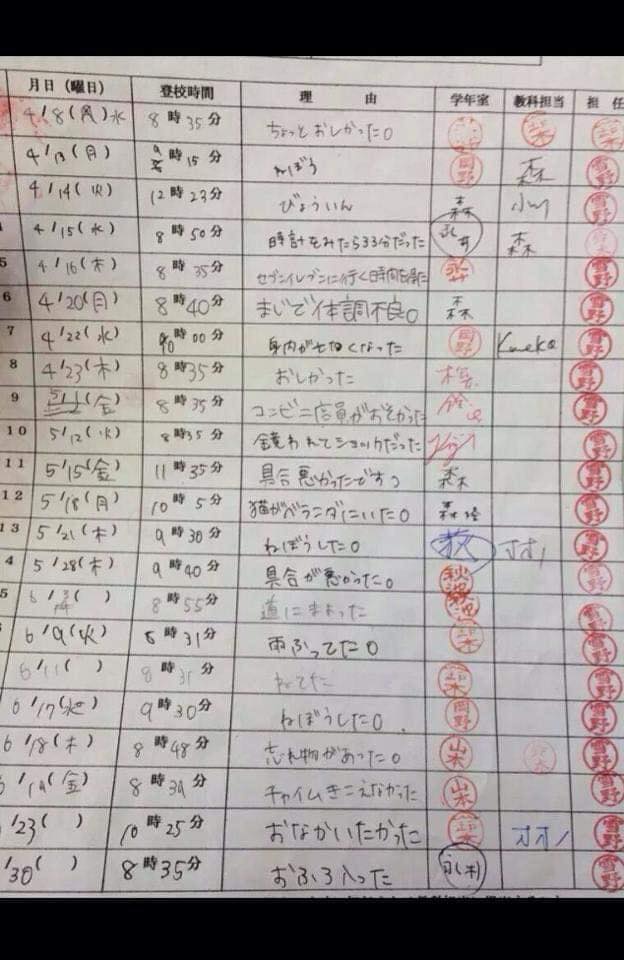 月日（曜日） 登校時間 理由 学年室 教科担当 担任
4/8(月)水 8時35分 ちょっとおしかった。
4/13(月) 9時15分 ねぼう 岡野 森 雪野
4/14(火) 12時23分 びょういん 森 小川 雪野
4/15(水) 8時50分 時計をみたら33分だった 永井 森
5 4/16(木) 8時35分 セブンイレブンに行く時間を 雪野
6 4/20(月) 8時40分 まじで体調不良。 森 雪野
7 4/22(水) 10時00分 身内が亡くなった 岡野 Kaneko 雪野
8 4/23(木) 8時35分 おしかった 雪野
9 (金) 8時35分 コンビニ店員がおそかった 雪野
10 5/12(火) 8時35分 鏡われてショックだった 雪野
11 5/15(金) 11時35分 具合悪かったです 森 雪野
12 5/18(月) 10時5分 猫がベランダにいた。 森 雪野
13 5/21(木) 9時30分 ねぼうした。 雪野
4 5/28(木) 9時40分 具合が悪かった。 雪野
5 6/ 8時55分 道にまよった 雪野
6/9(火) 8時31分 雨ふってた。 雪野
6/11( ) 8時31分 ねてた 雪野
6/17(水) 9時30分 ねぼうした。 岡野 雪野
6/18(木) 8時48分 忘れ物があった。 山本 雪野
6/19(金) 8時39分 チャイムきこえなかった 山本 雪野
/23( ) 10時25分 おなかいたかった オオノ 雪野
/30( ) 8時35分 おふろ入った 雪野